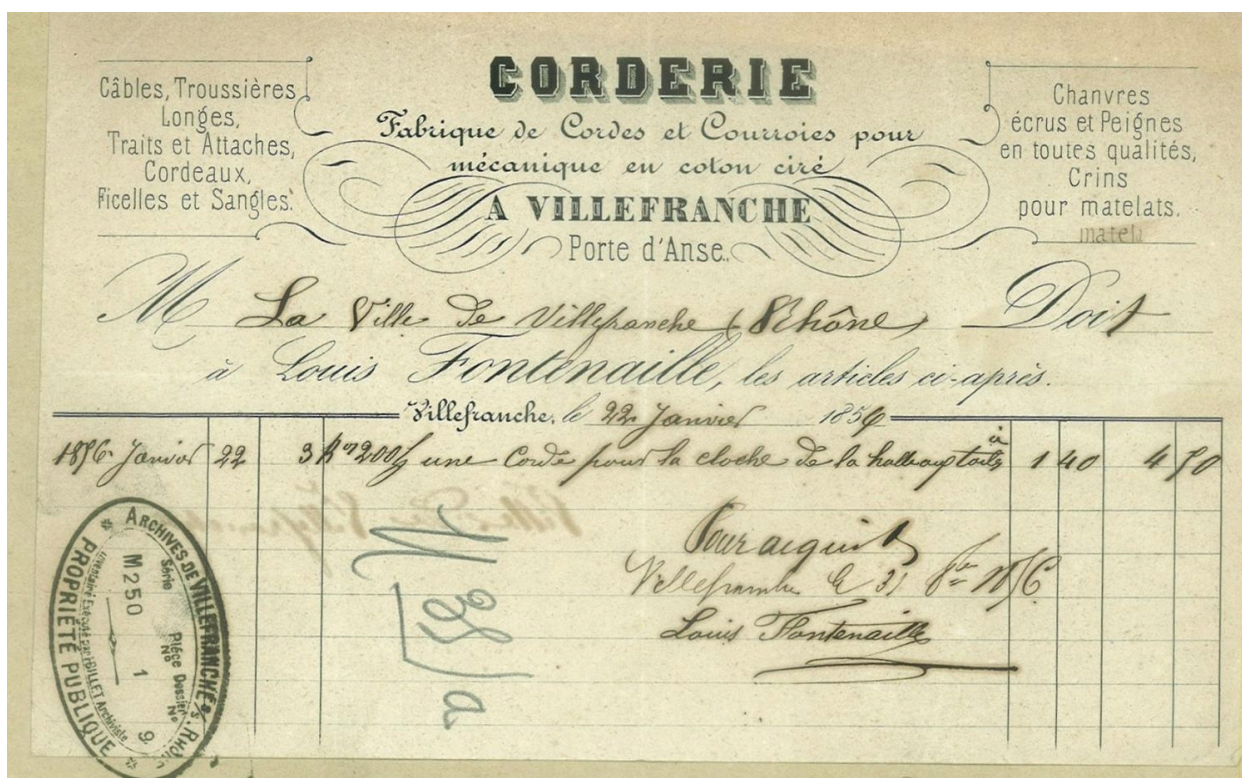 CORDERIE
Câbles, Troussières
Longes,
Traits et Attaches,
Cordeaux,
Ficelles et Sangles.
Fabrique de Cordes et Courroies pour
mécanique en coton ciré
A VILLEFRANCHE
Porte d'Anse.
Chanvres
écrus et Peignes
en toutes qualités,
Crins
pour matelats.
matel
M La Ville de Villefranche (Rhône) Doit
à Louis Fontenaille, les articles ci-après.
Villefranche, le 22 Janvier 1856
1856 Janvier 22 3 K 200 une Corde pour la cloche de la halle aux à 1 40 4 50
Pour acquit
Villefranche le 31 1856
Louis Fontenaille
ARCHIVES DE VILLEFRANCHE s/ RHÔNE
Inventaire Exécuté par POILLET Archiviste
Série
M250
Pièce
No
1
Dossier
No
9
PROPRIÉTÉ PUBLIQUE